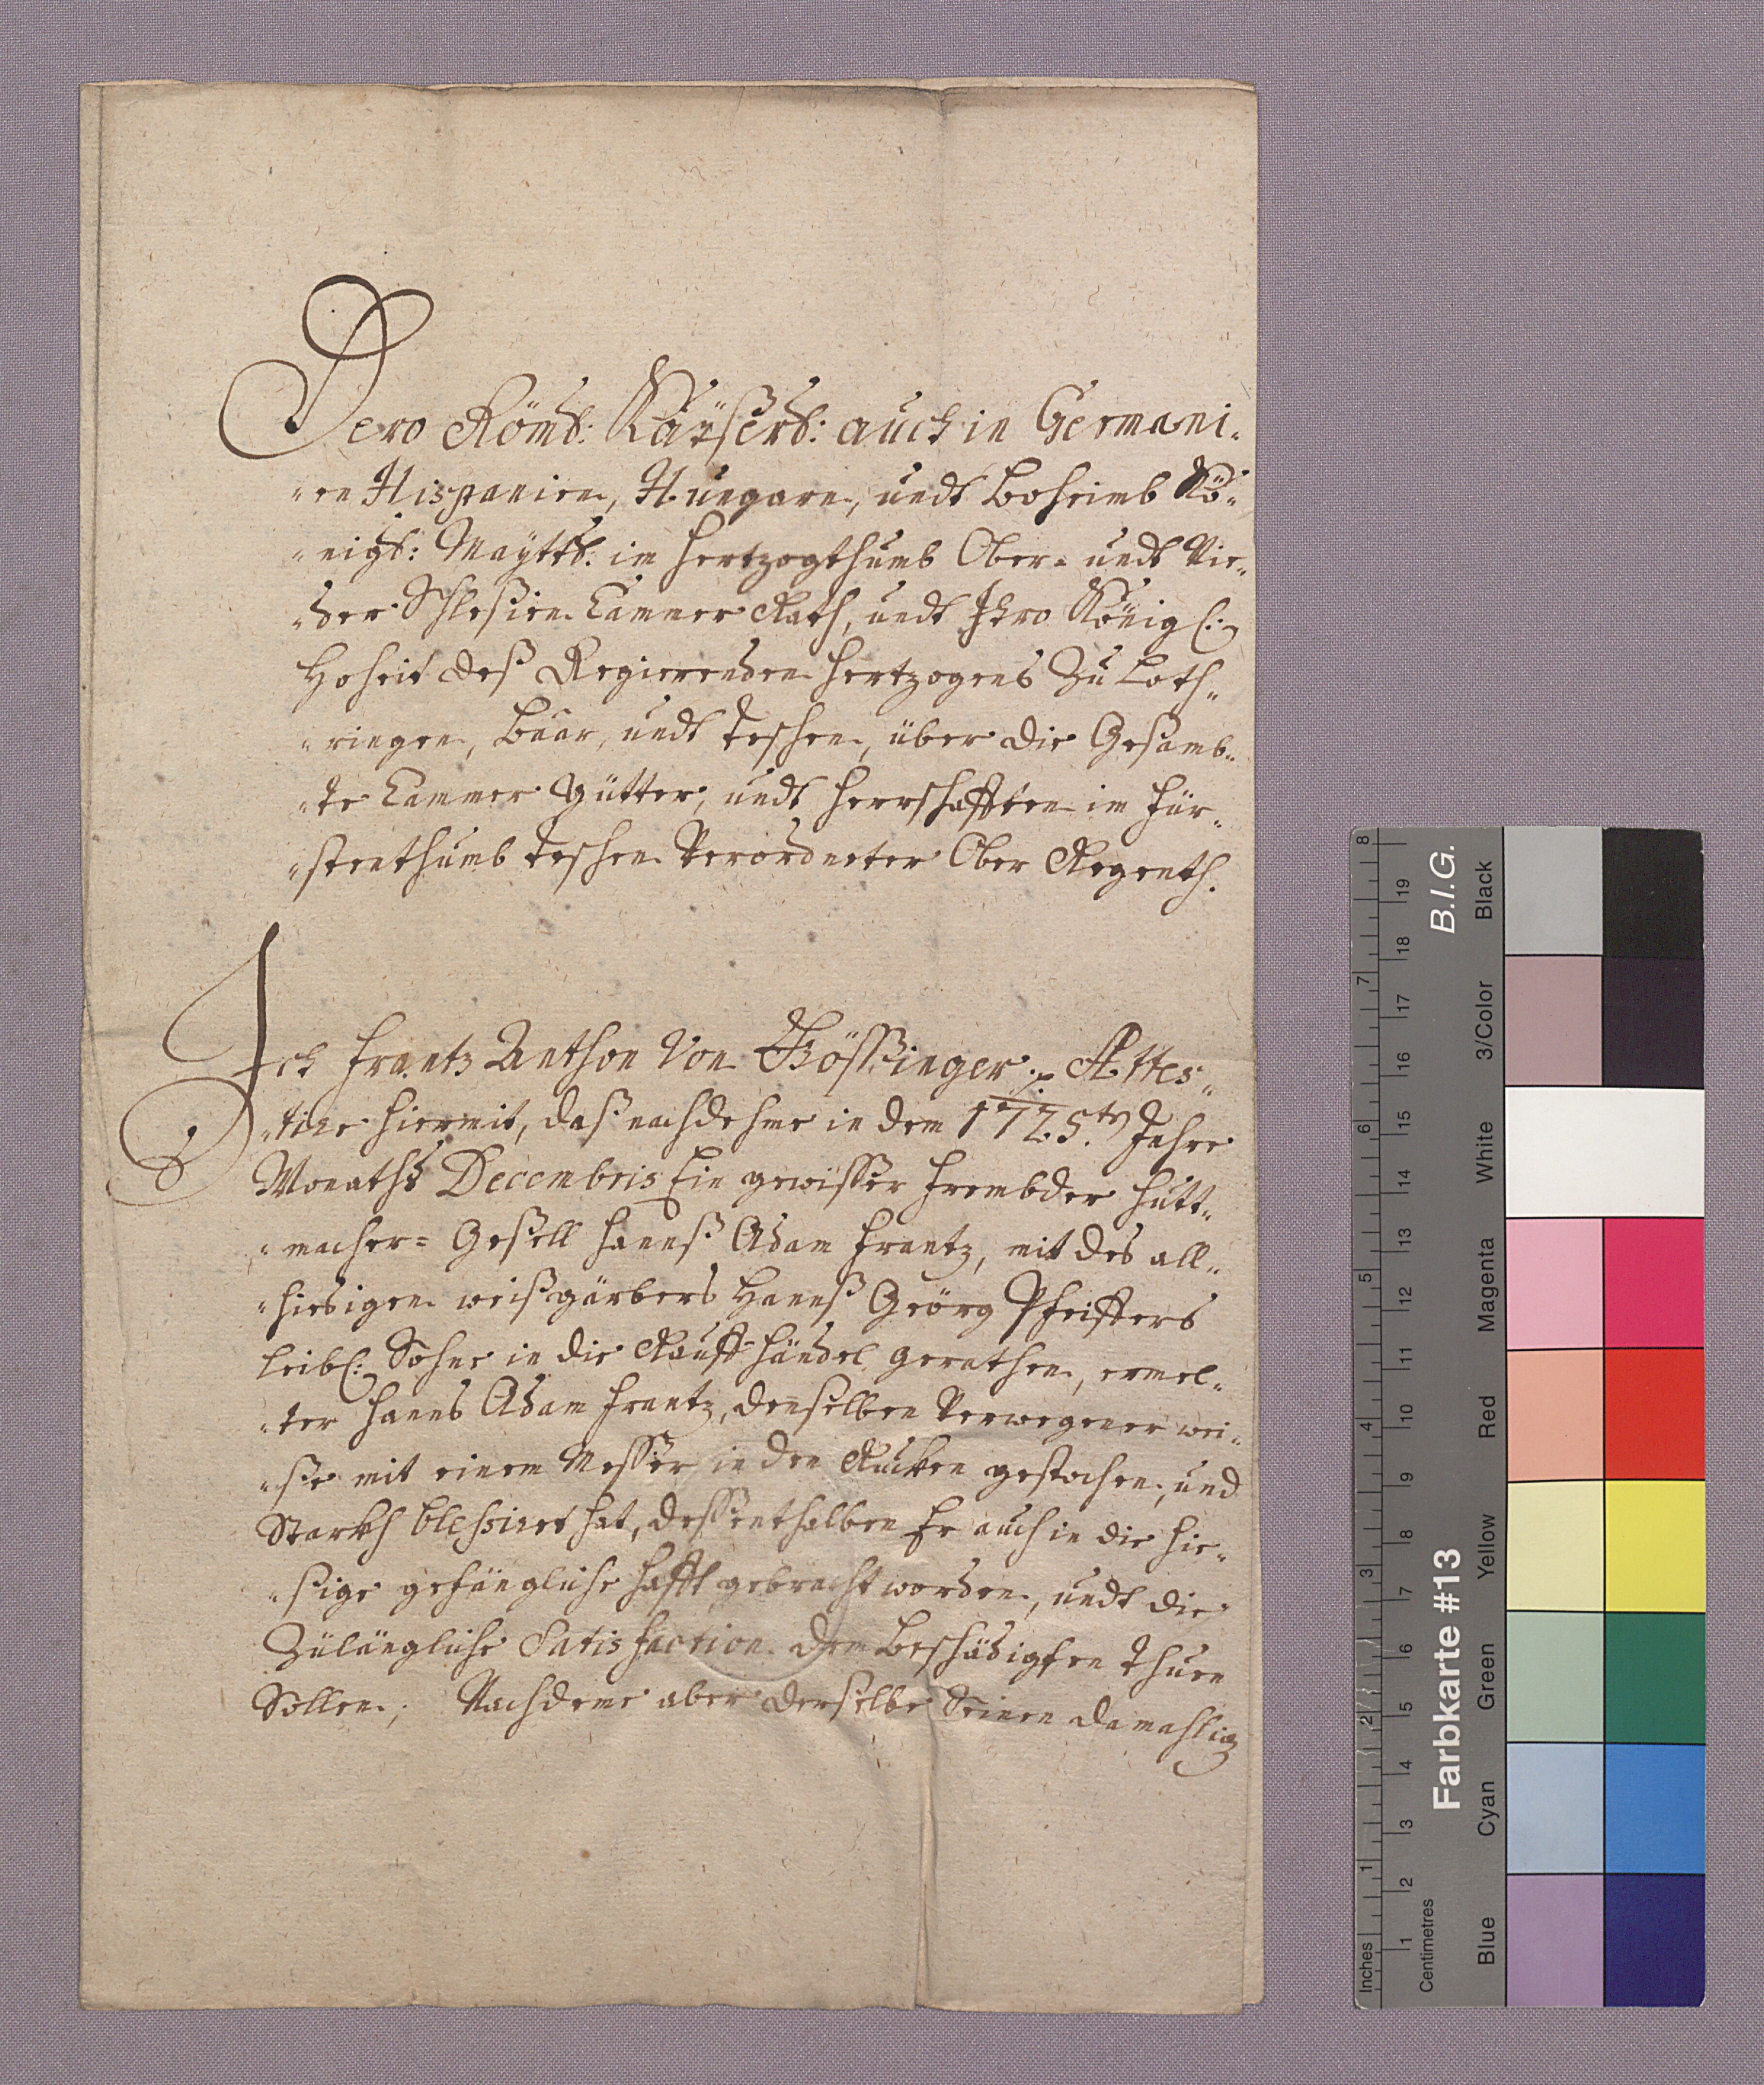 Dero Röml: Kayßerl: auch in Germani-
-en Hispanien, Hungarn, undt Boheimb Kö-
-nigl: Mayttl. im Hertzogthumb Ober- undt Nie-
-der Schlesien Cammer Rath, undt Ihro Königl:
Hoheit deß Regierenden Hertzogens Zu Loth-
-ringen, Baar, undt Teschen, über die Gesamb-
-te Cammer Gütter, undt Herrschafften im Für-
-stenthumb Teschen Verordneter Ober Regenth.
Ich Frantz Anthon Von Gößinger Attes-
-tire hiermit, daß nachdehme in dem 1725.ten Jahre
Monaths Decembris Ein gewisser frembder Hutt-
-macher= Gesell Hannß Adam Frantz, mit des all-
-hiesigen weißgärbers Hannß Geörg Pfeiffers
leibl: Sohne in die Rauff händel gerathen, ermel-
-ter Hanns Adam Frantz, denselben Verwegener wei-
-se mit einem Messer in den Rucken gestochen, und
Starkh blessiret hat, dessenthalben Er auch in die hie-
-sige gefängliche Hafft gebracht worden, undt die
Zulängliche Satisfaction dem Beschädigten thuen
Sollen; Nachdeme aber derselbe Seinen damahlig
Farbkarte #13
B.I.G.
Inches
1 2 3 4 5 6 7 8
Centimetres
1 2 3 4 5 6 7 8 9 10 11 12 13 14 15 16 17 18 19
Blue
Cyan
Green
Yellow
Red
Magenta
White
3/Color
Black